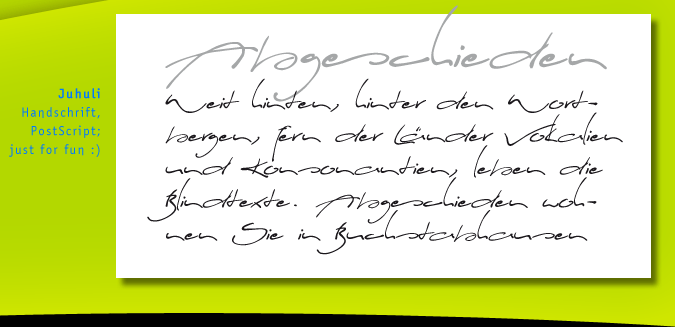 Juhuli
Handschrift,
PostScript;
just for fun :)
Abgeschieden
Weit hinten, hinter den Wort-
bergen, fern der Länder Vokalien
und Konsonantien, leben die
Blindtexte. Abgeschieden woh-
nen Sie in Buchstabhausen